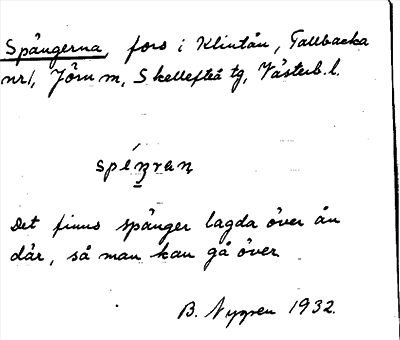 Spångerna, fors i Klintån, Tallbacka
nr1, Jörn m, Skellefteå tg, Västerb. l.
Det finns spänger lagda över ån
där, så man kan gå över
B. Nygren 1932.